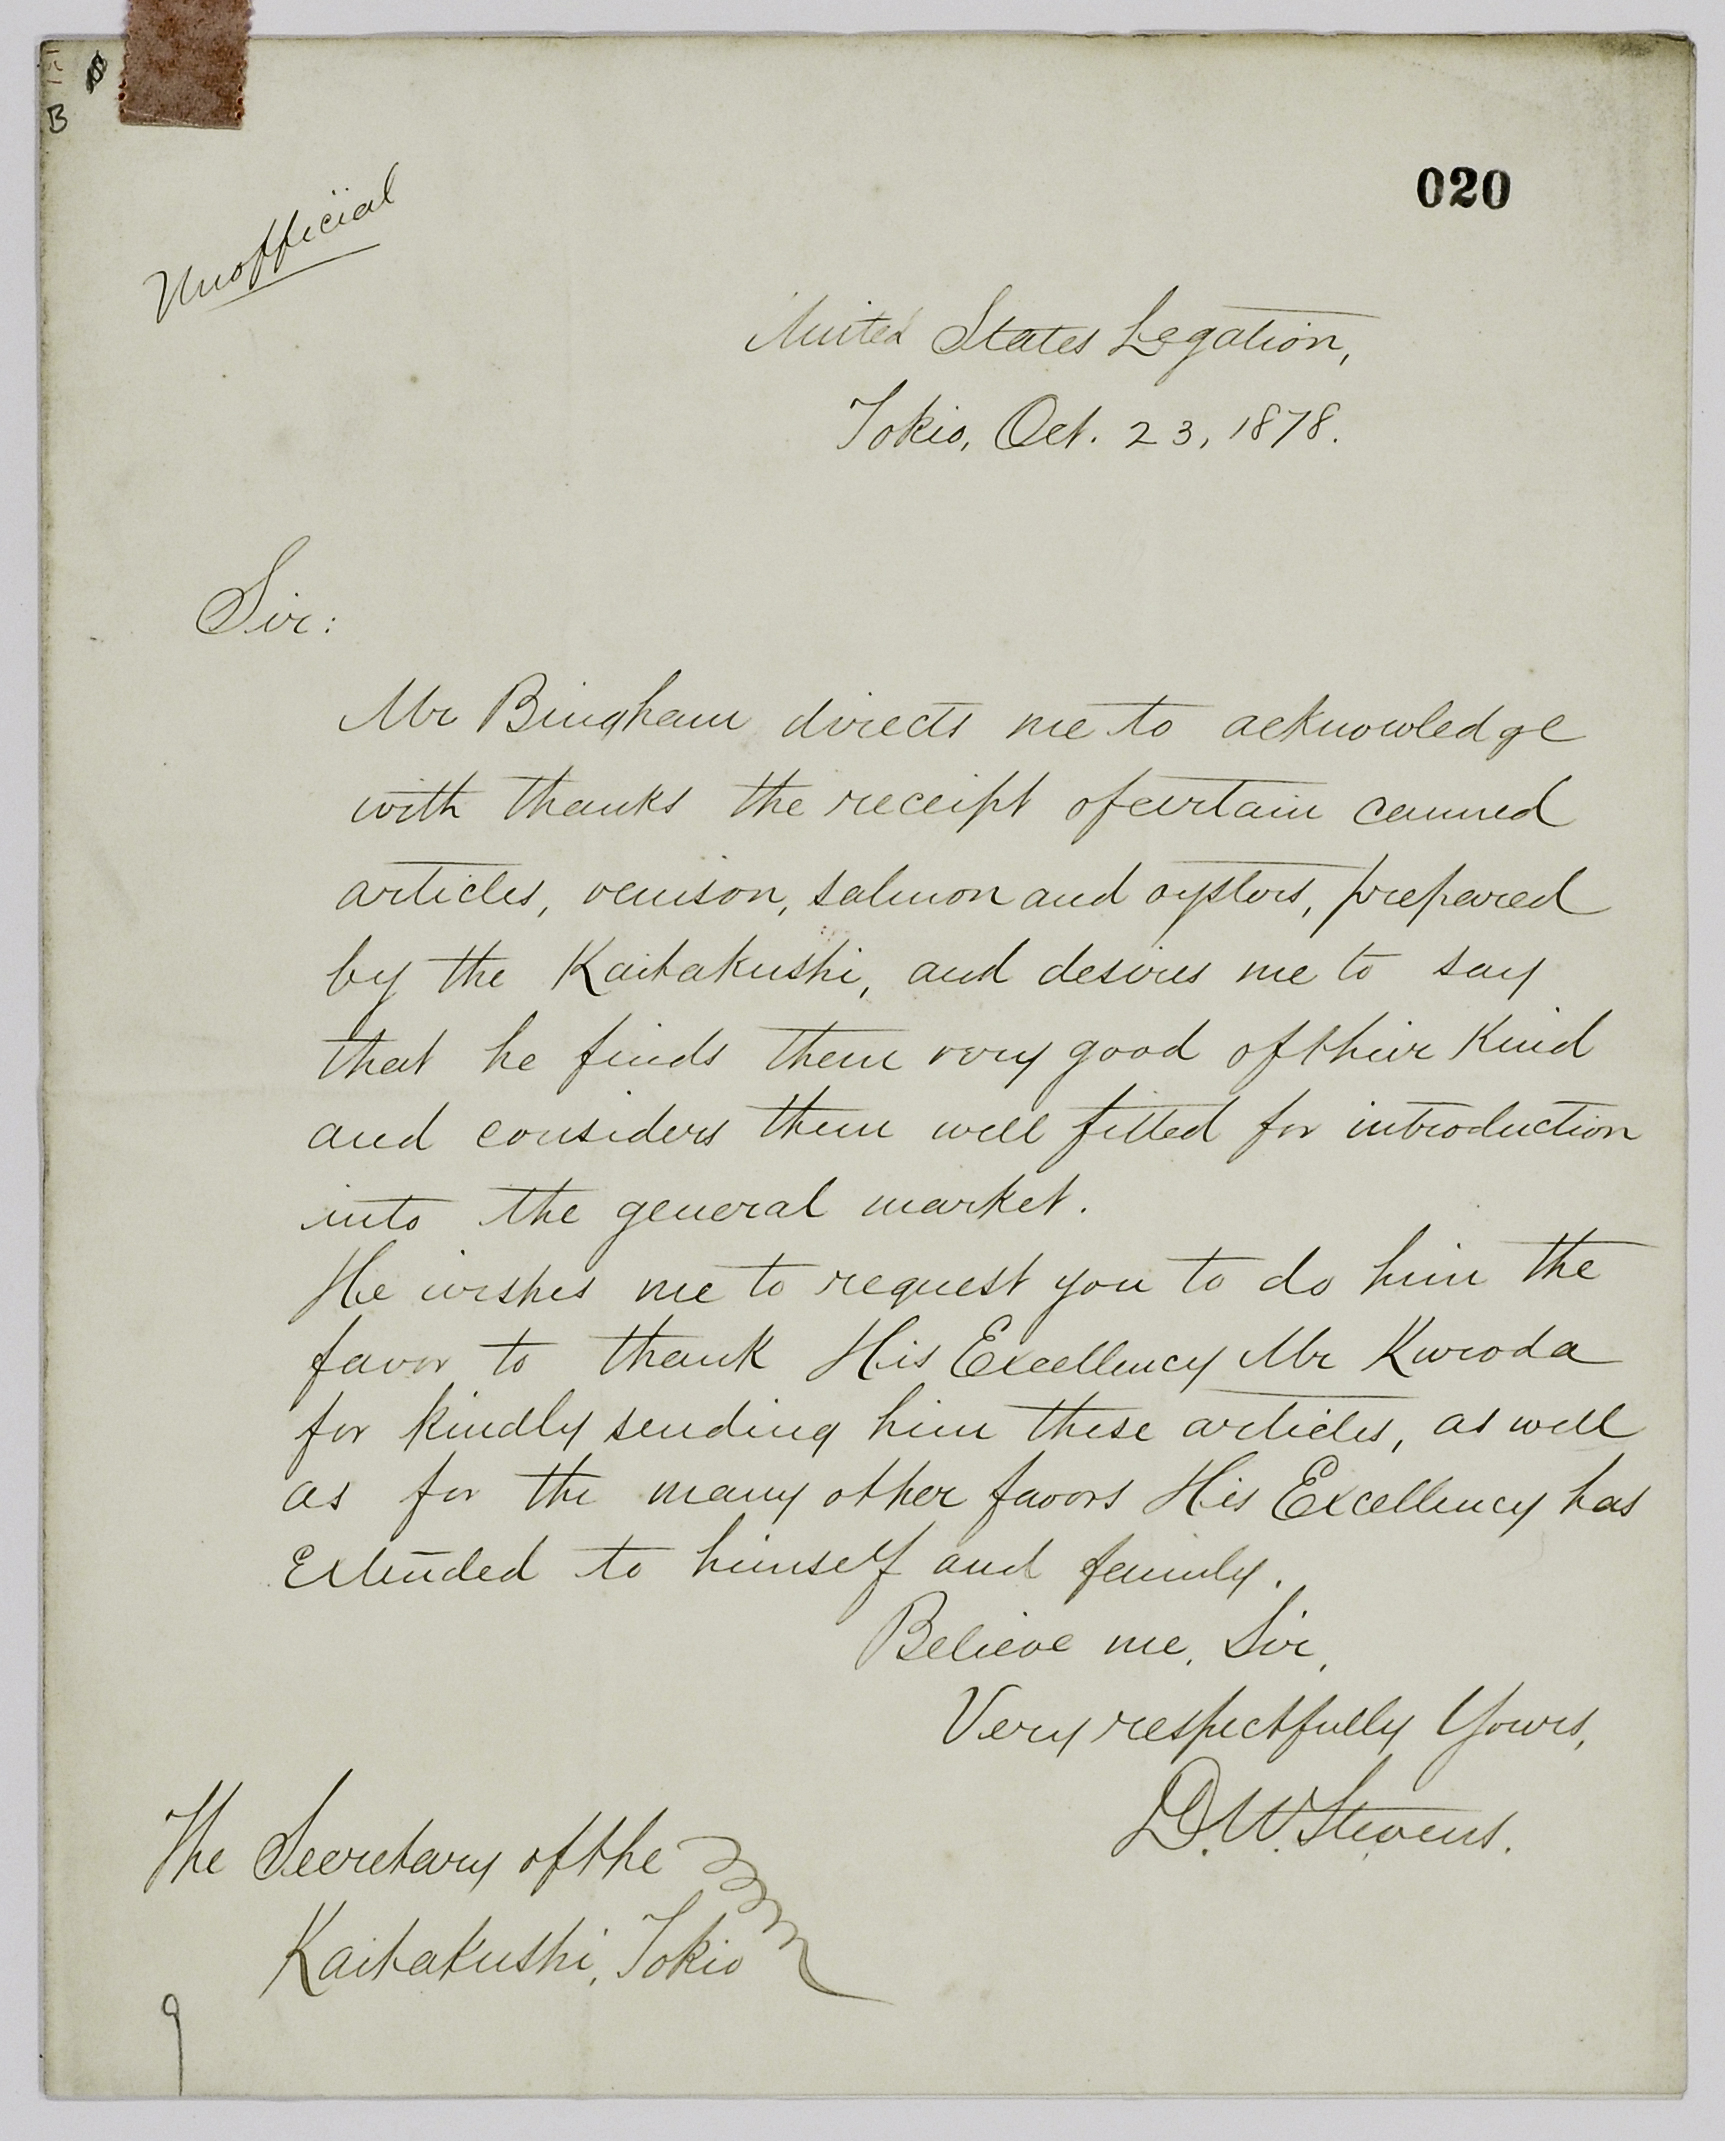 B
020
Unofficial
United States Legation,
Tokio, Oct. 23, 1878.
Sir:
Mr Bingham directs me to acknowledge
with thanks the receipt of certain canned
articles, venison, salmon and oysters, prepared
by the Kaitakushi, and desires me to say
that he finds them very good of their kind
and considers them well fitted for introduction
into the general market.
He wishes me to request you to do him the
favor to thank His Excellency Mr Kuroda
for kindly sending him these articles, as well
as for the many other favors His Excellency has
extended to himself and family.
Believe me, Sir,
Very respectfully Yours,
D. W. Stevens.
The Secretary of the
Kaitakushi, Tokio
9